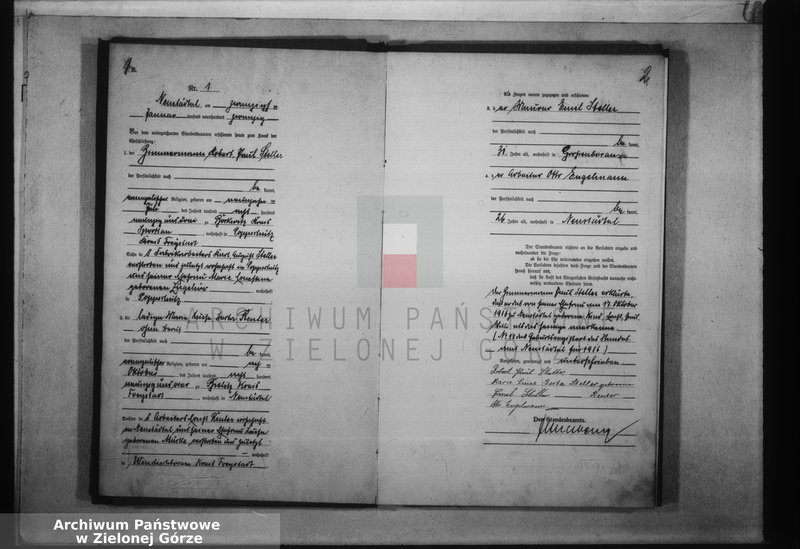 1
B.
Nr. 1
Neustädtel, am zwanzigsten
Januar tausend neunhundert zwanzig
Vor dem unterzeichneten Standesbeamten erschienen heute zum Zweck der
Eheschließung:
1. der Zimmermann Robert Paul Steller
der Persönlichkeit nach
be kannt,
evangelischer Religion, geboren am neunzehnten
Juli des Jahres tausend acht hundert
neunzig und drei zu Kreis
Sprottau, wohnhaft in Popperschütz
Kreis Freystadt
Sohn des Fabrikarbeiters Karl August Steller
verstorben und zuletzt wohnhaft in Popperschütz
und seiner Ehefrau Marie, Ernestine
geborenen wohnhaft
in Popperschütz
2. die ledige Maria, Luise, Berta Renter
ohne Beruf
der Persönlichkeit nach
be kannt,
evangelischer Religion, geboren am
Oktober des Jahres tausend acht hundert
neunzig und vier zu Kreis
Freystadt, wohnhaft in Neustädtel
Tochter des Arbeiters Ernst Renter wohnhaft
in Neustädtel und seiner Ehefrau
geborenen verstorben und zuletzt
wohnhaft
in Windischborau Kreis Freystadt
2
Als Zeugen waren zugezogen und erschienen:
3. der Maurer Emil Steller
der Persönlichkeit nach
be kannt,
Jahre alt, wohnhaft in Großenborau
4. der Arbeiter Otto Engelmann
der Persönlichkeit nach
be kannt,
26 Jahre alt, wohnhaft in Neustädtel
Der Standesbeamte richtete an die Verlobten einzeln und
nacheinander die Frage:
ob sie die Ehe miteinander eingehen wollen.
Die Verlobten bejahten diese Frage und der Standesbeamte
sprach hierauf aus,
daß sie kraft des Bürgerlichen Gesetzbuchs nunmehr recht-
mäßig verbundene Eheleute seien.
Der Zimmermann Paul Steller erklärte,
daß er das von seiner Ehefrau am 17. Oktober
1916 zu Neustädtel geborene Kind, Ernst, Paul
als das seinige anerkenne
(No des Geburtsregisters des Standes-
amts Neustädtel für 1916)
Vorgelesen, genehmigt und unterschrieben
Robert Paul Steller
Marie Luise Berta Steller geborene
Renter
Emil Steller
Otto Engelmann
Der Standesbeamte.
ARCHIWUM PAŃS
W ZIELONEJ G
Archiwum Państwowe
w Zielonej Górze